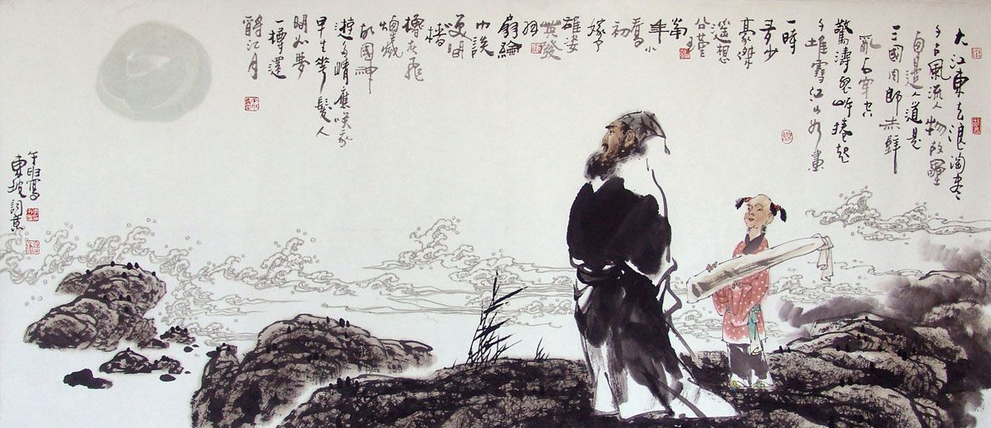 大江東去浪淘盡
千古風流人物故壘
西邊人道是
三國周郎赤壁
亂石穿空
驚濤裂岸捲起
千堆雪江山如畫
一時
多少
豪傑
遙想
公瑾
當
年小
喬
初
嫁了
雄姿
英發
羽
扇綸
巾談
笑間
檣
櫓灰飛
煙滅
故國神
遊多情應笑我
早生華髮人
間如夢
一樽還
酹江月
寫
東坡詞意